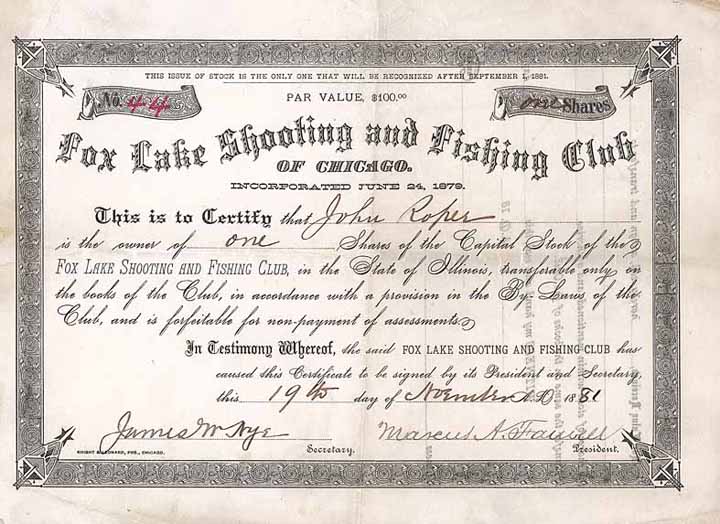 THIS ISSUE OF STOCK IS THE ONLY ONE THAT WILL BE RECOGNIZED AFTER SEPTEMBER 1, 1881.
No. 44
PAR VALUE, $100.00
one Shares
Fox Lake Shooting and Fishing Club
OF CHICAGO.
INCORPORATED JUNE 24, 1879.
This is to Certify that John Roper
is the owner of one Shares of the Capital Stock of the
FOX LAKE SHOOTING AND FISHING CLUB, in the State of Illinois, transferable only on
the books of the Club, in accordance with a provision in the By-Laws of the
Club, and is forfeitable for non-payment of assessments.
In Testimony Whereof, the said FOX LAKE SHOOTING AND FISHING CLUB has
caused this Certificate to be signed by its President and Secretary,
this 19th day of November A.D. 1881
James W Nye
Marcus A. Farwell
KNIGHT & LEONARD, PRS., CHICAGO.
Secretary.
President.